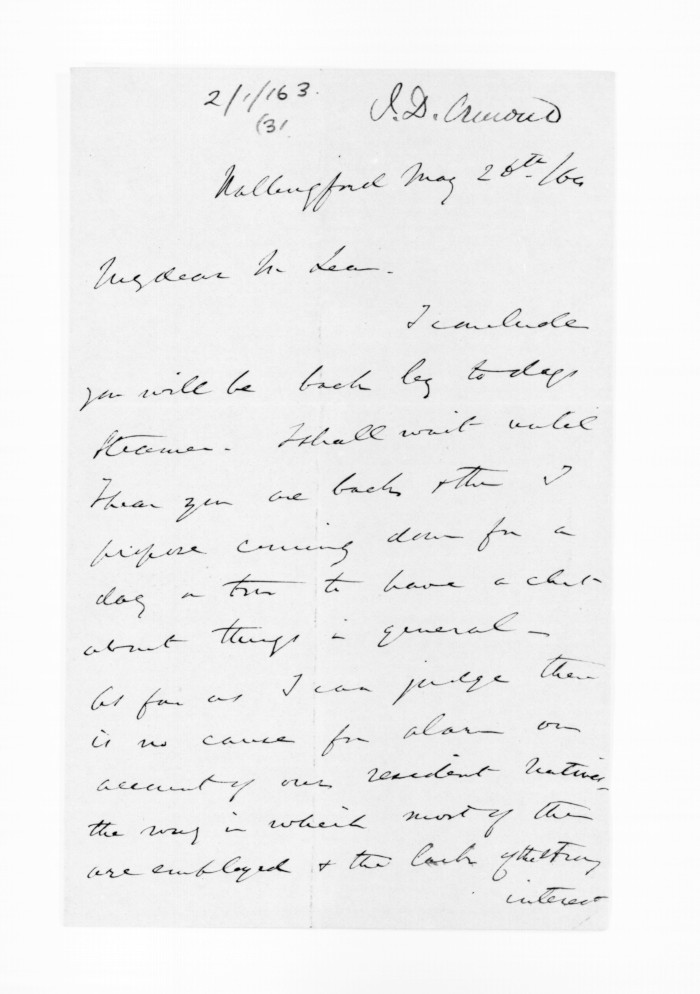 2/1/163.
(31
J. D. Ormond
Wallingford May 28th /60
My dear McLean.
I conclude
you will be back by to days
steamer. I shall wait until
I hear you are back & then I
propose coming down for a
day or two to have a chat
about things in general -
As far as I can judge there
is no cause for alarm on
account of our resident natives -
the way in which most of them
are employed & the
interest